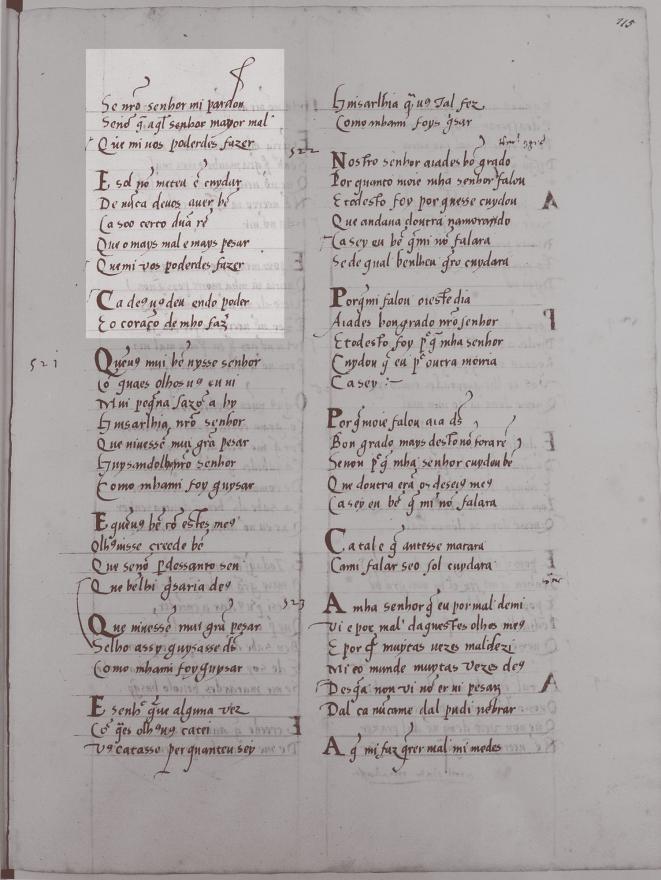 115
Se nr̃o senhor mi pardon
Senõ q̃ aq̃l senhor mayor mal
Que mi vos poderdes fazer
E sol nõ meteu ẽ cuydar
De nũca deues auer bẽ
Ca soo certo dũa rẽ
Que o mays mal e mays pesar
Que mi vos poderdes fazer
Ca de9 u9 deu endo poder
E o coraçõ de mho faz̃
521
Queu9 mui bẽ uysse senhor
Cõ quaes olhos u9 eu ui
Mui peq̃na sazõ a hy
Guisarlhia nr̃o senhor
Que uiuesse mui grã pesar
Guysandolho nr̃o senhor
Como mhami foy guysar
E queu9 bẽ cõ estes me9
Olh9 uisse creede bẽ
Que senõ p̃dessanto sen
Que belhi g̃saria de9
Que uiuesse mui grã pesar
Selho assy guysasse ds̃
Como mhami foy guysar
E senh̃ que alguna vez
Cõ q̃es olh9 u9 catei
Vo9 catasse per quanteu sey
Guisarlhia q̃ u9 tal fez
Como mhami foy g̃sar
522
Nostro senhor aiades bõ grado
Por quanto moie mha senhor falou
E todesto foy por quesse cuydou
Que andaua doutra namorando
Ca sey eu bẽ q̃ mi nõ falara
Se de qual benlheu q̃ro cuydara
Porq̃ mi falou oieste dia
Aiades bon grado nr̃o senhor
E todesto foy p̃q̃ mha senhor
Cuydou q̃ eu p̃ outra moiria
Ca sey :~
Porq̃ moie falou aia ds̃
Bon grado mays desto nõ forarẽ
Senon p̃q̃ mha senhor cuydou bẽ
Que doutra erã os deseig me9
Ca sey eu bẽ q̃ mi nõ falara
Ca tal e q̃ antesse matara
Cami falar seo sol cuydara
523
A mha senhor q̃ eu por mal demi
Vi e por mal daquestes olhos me9
E por q̃ muytas uezes maldezi
Mi eo mundo muytas vezes de9
Des q̃a non vi nõ er ui pesar
Dal ca nũcame dal pudi nebrar
A q̃ mi faz q̃rer mal mi medes